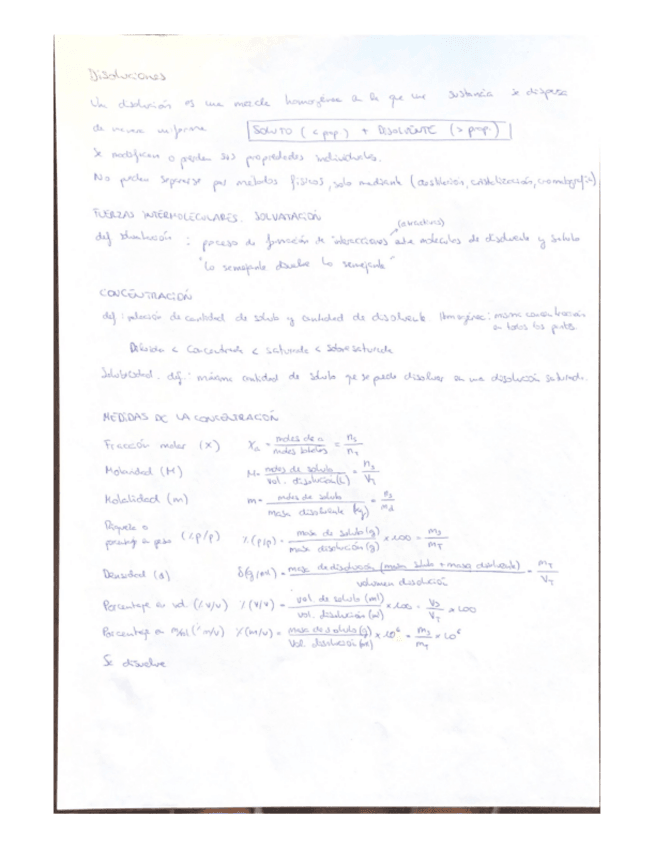 Disoluciones
Una disolución es una mezcla homogénea en la que una sustancia se dispersa
de manera uniforme SOLUTO (< prop.) + DISOLVENTE (> prop.)
Se modifican o pierden sus propiedades individuales.
No pueden separarse por métodos físicos, solo mediante (destilación, cristalización, cromatografía)
FUERZAS INTERMOLECULARES. SOLVATACIÓN
(atractivas)
def : proceso de formación de interacciones entre moléculas de disolvente y soluto
"Lo semejante disuelve lo semejante"
CONCENTRACIÓN
def: relación de cantidad de soluto y cantidad de disolvente. Homogénea: misma concentración
en todos los puntos.
Diluida < Concentrada < saturada < sobresaturada
Solubilidad. def.: máxima cantidad de soluto que se puede disolver en una disolución saturada.
MEDIDAS DE LA CONCENTRACIÓN
Fracción molar (X) Xa = moles de a / moles totales = ns / nT
Molaridad (M) M = moles de soluto / vol. disolución (L) = ns / VT
Molalidad (m) m = moles de soluto / masa disolvente (kg) = ns / md
Riqueza o
porcentaje en peso (% p/p) % (p/p) = masa de soluto (g) / masa disolución (g) × 100 = ms / mT
Densidad (d) δ (g/ml) = masa de disolución (masa soluto + masa disolvente) / volumen disolución = mT / VT
Porcentaje en vol. (% v/v) % (v/v) = vol. de soluto (ml) / vol. disolución (ml) × 100 = Vs / VT × 100
Porcentaje en (% m/v) % (m/v) = masa de soluto (g) / vol. disolución (ml) × 10⁶ = ms / mT × 10⁶
Se disuelve